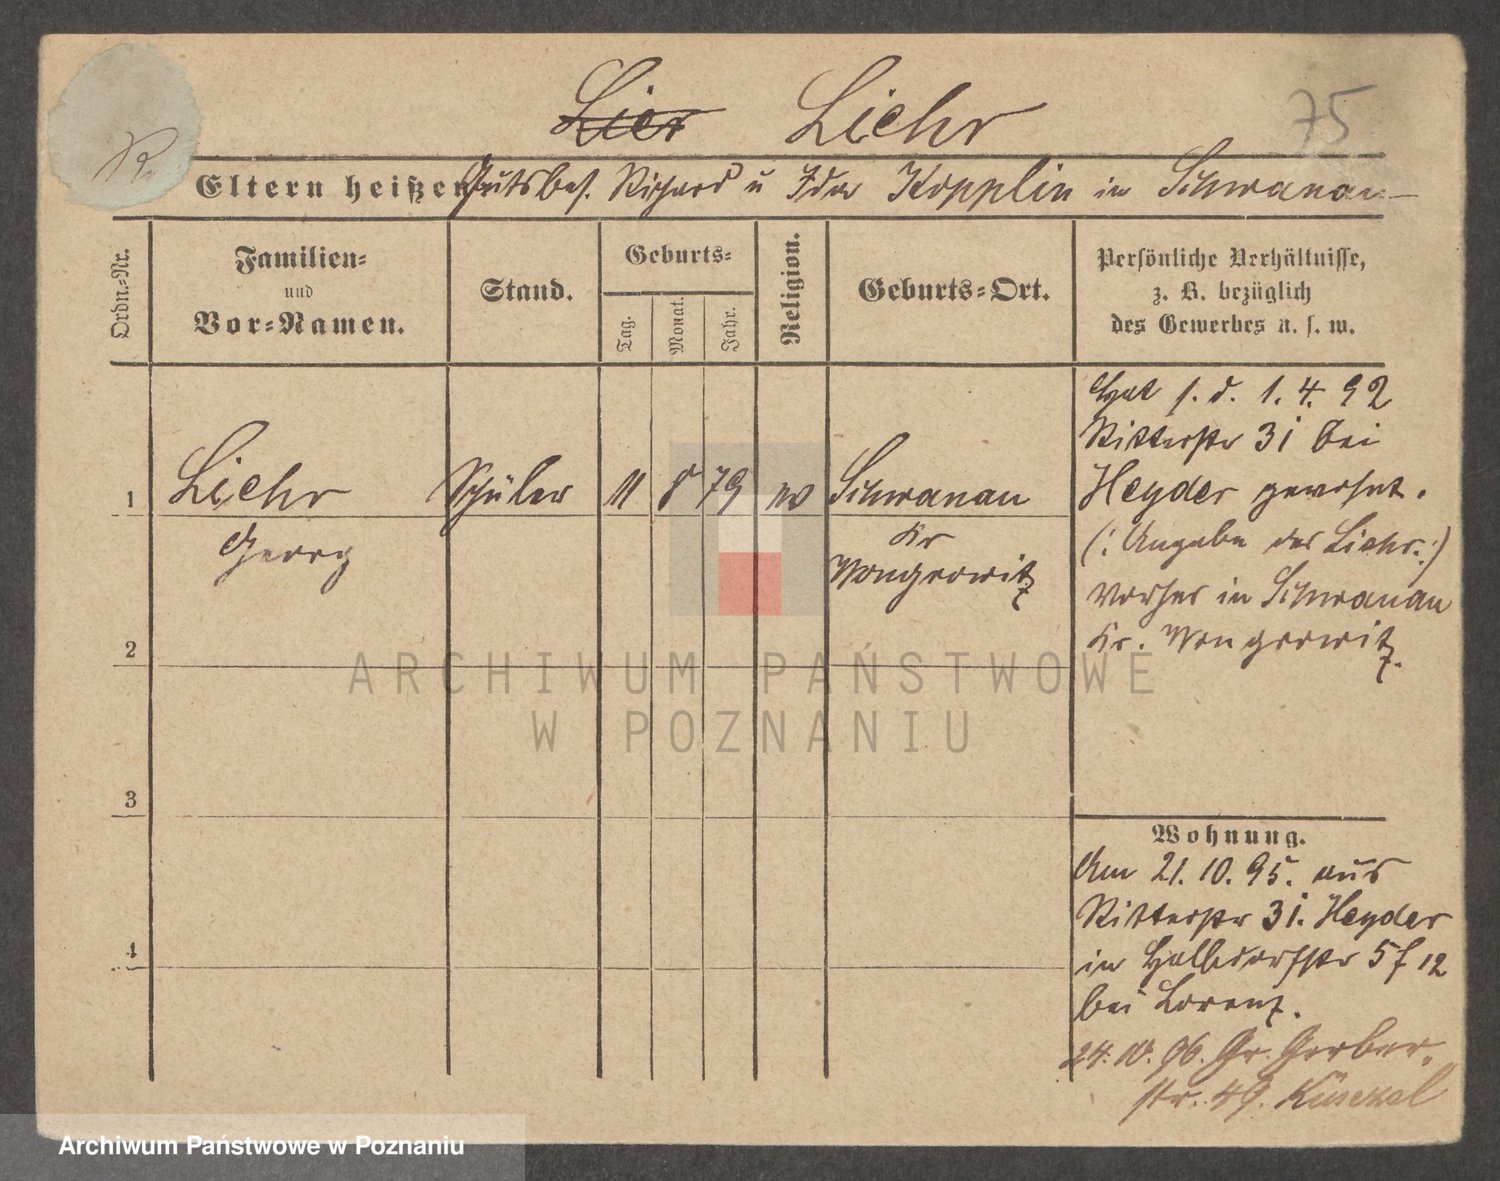 Lier Liehr 75
R.
Eltern heißen Gutsbes. Richard u Ida Kopplin in Schwanau
Ordn.-Nr.
Familien-
und
Vor-Namen.
Stand.
Geburts-
Tag.
Monat.
Jahr.
Religion.
Geburts-Ort.
Persönliche Verhältnisse,
z. B. bezüglich
des Gewerbes u. s. w.
1 Liehr Schüler 11 8 79 ev Schwanau
Georg Kr
Wongrowitz
2
3
4
Hat s. d. 1. 4. 92
Ritterstr 31 bei
Heyder gewohnt.
(: Angabe des Liehr. :)
vorher in Schwanau
Kr. Wongrowitz.
Wohnung.
Am 21. 10. 95. aus
Ritterstr 31. Heyder
in Halbdorfstr 5 f 12
bei Lorenz.
24. 10. 96. Gr. Gerber-
str. 49.
ARCHIWUM PAŃSTWOWE
W POZNANIU
Archiwum Państwowe w Poznaniu